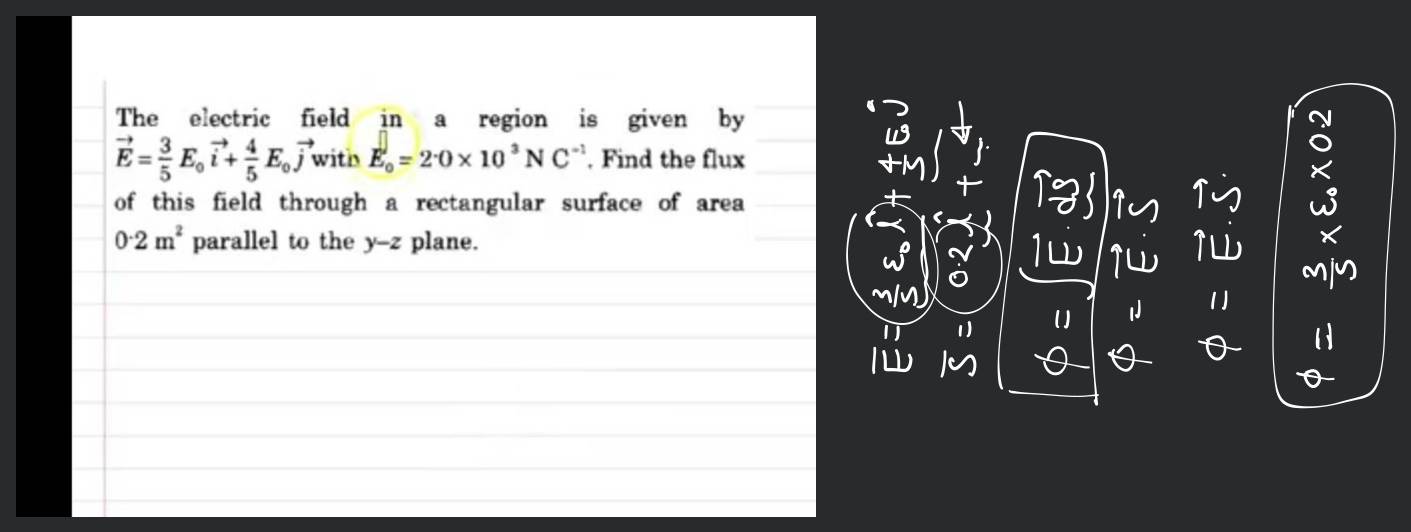 The electric field in a region is given by
E⃗ = 3/5 E₀ i⃗ + 4/5 E₀ j⃗ with E₀ = 2·0 × 10³ N C⁻¹. Find the flux
of this field through a rectangular surface of area
0·2 m² parallel to the y–z plane.
E⃗ = 3/5 E₀ î + 4/5 E₀ ĵ
S⃗ = 0.2 î +
ϕ = ∫ E⃗ . ds⃗
ϕ = E⃗ . S⃗
ϕ = E⃗ . S⃗
ϕ = 3/5 × E₀ × 0.2